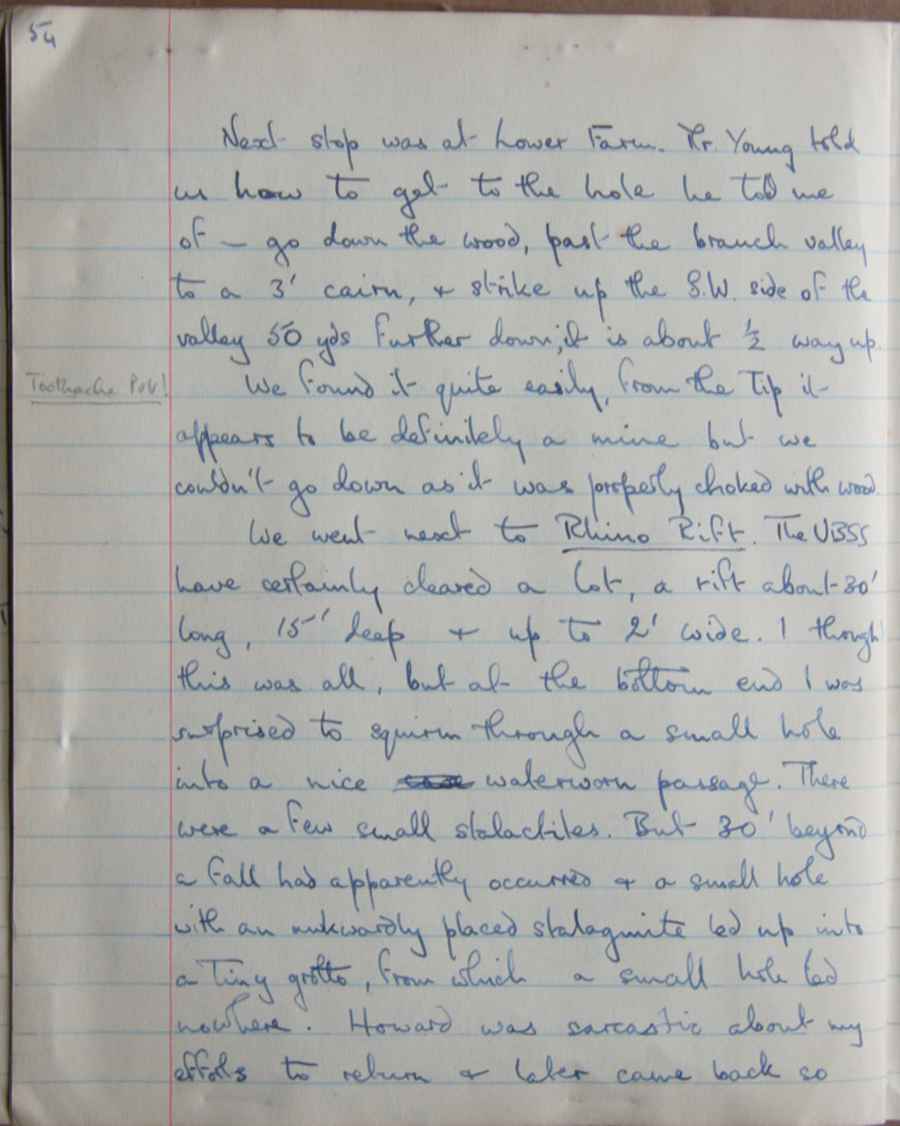 54
Next stop was at Lower Farm. Mr. Young told
us how to get to the hole he told me
of – go down the wood, past the branch valley
to a 3' cairn, + strike up the S.W. side of the
valley 50 yds further down; it is about ½ way up.
Toothache Pot!
We found it quite easily, from the tip it
appears to be definitely a mine but we
couldn't go down as it was properly choked with wood.
We went next to Rhino Rift. The UBSS
have certainly cleared a lot, a rift about 30'
long, 15' deep + up to 2' wide. I though
this was all, but at the bottom end I was
surprised to squirm through a small hole
into a nice waterworn passage. There
were a few small stalactites. But 30' beyond
a fall had apparently occurred + a small hole
with an awkwardly placed stalagmite led up into
a tiny grotto, from which a small hole led
nowhere. Howard was sarcastic about my
efforts to return + later came back so